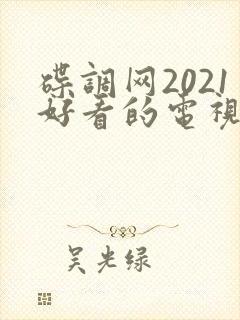 碟調网2021
好看的電視
吴光绿